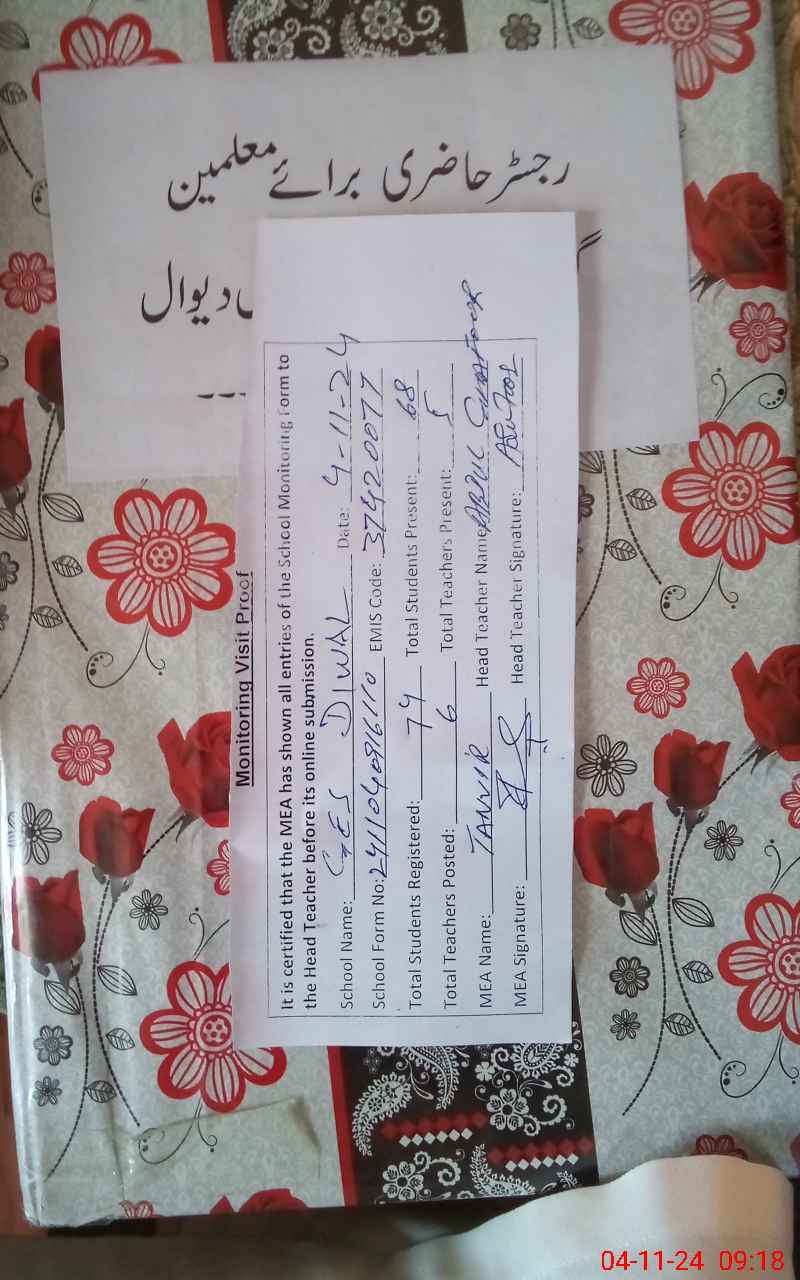 رجسٹر حاضری برائے معلمین
دیوال
Monitoring Visit Proof
It is certified that the MEA has shown all entries of the School Monitoring Form to
the Head Teacher before its online submission.
School Name: GES DIWAL Date: 4-11-24
School Form No: EMIS Code: 37420077
Total Students Registered: 74 Total Students Present: 68
Total Teachers Posted: 6 Total Teachers Present: 5
MEA Name: TANVIR Head Teacher Name: ABDUL
MEA Signature: Head Teacher Signature:
04-11-24 09:18